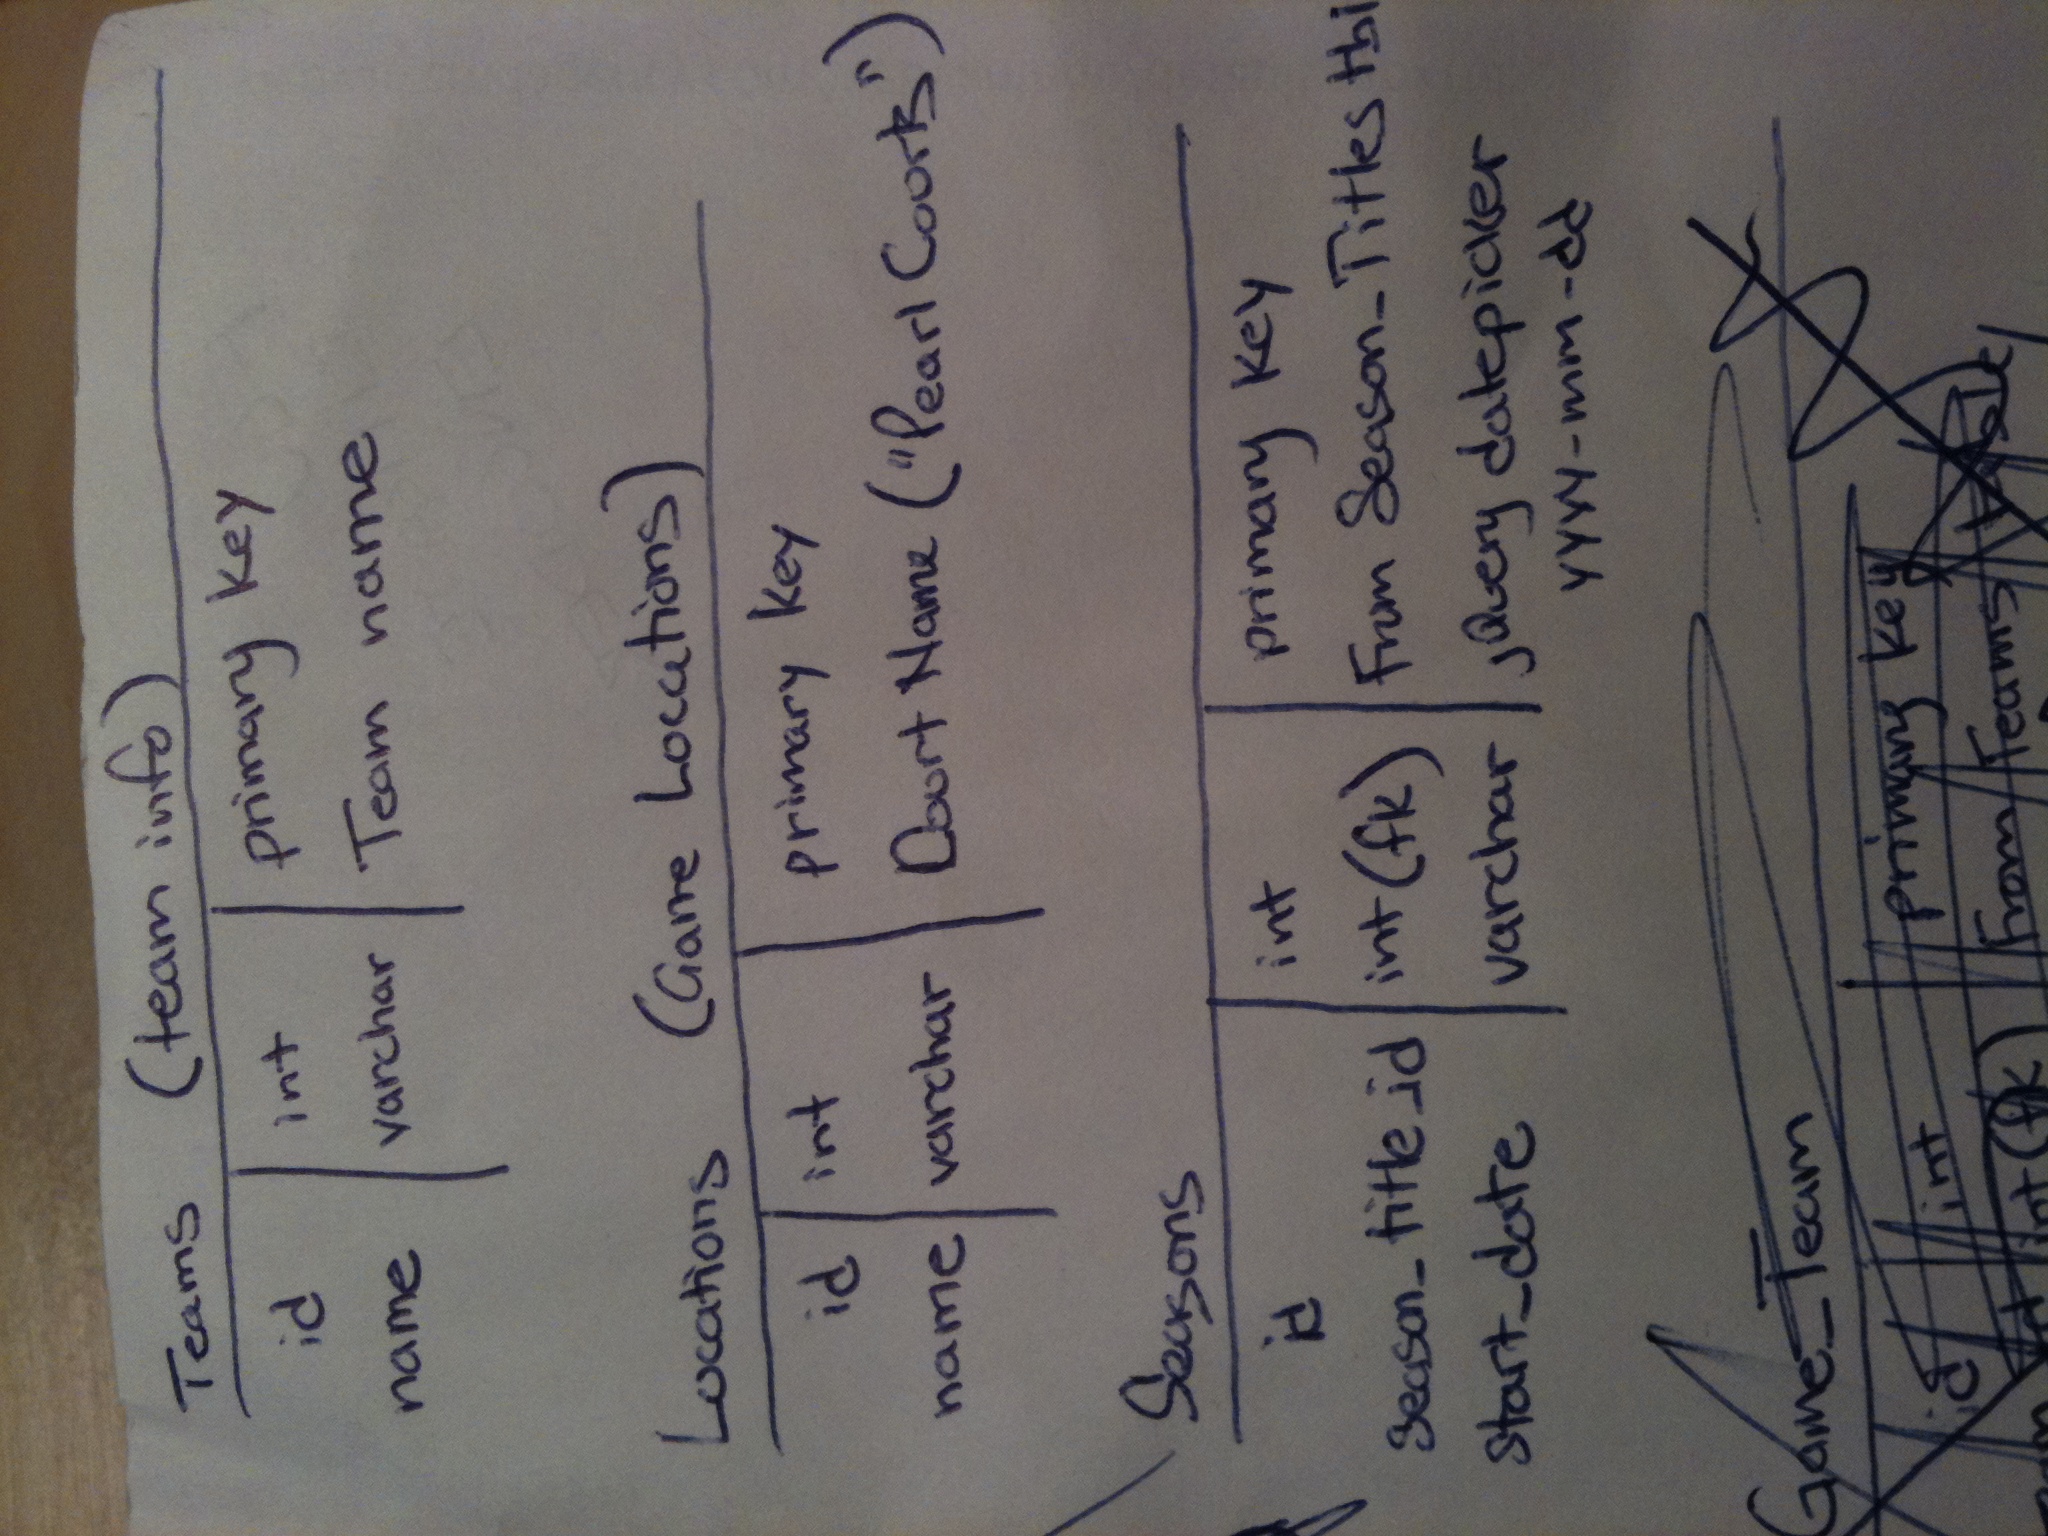 Teams (team info)
id int primary key
name varchar Team name
Locations (Game Locations)
id int primary key
name varchar Court Name ("Pearl Courts")
Seasons
id int primary key
season_title_id int (fk) From Season_Titles tbl
start_date varchar jQuery datepicker
yyyy-mm-dd
Game_Team
id int primary key
int (fk) From Teams